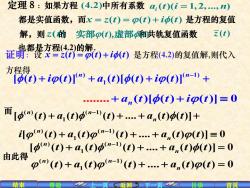 定理8：如果方程(4.2)中所有系数 a_i(t)(i = 1,2,...,n)
都是实值函数，而x = z(t) = φ(t) + iψ(t) 是方程的复值
解，则z(t)的 实部φ(t),虚部ψ(t)和共轭复值函数 z̄(t)
也都是方程(4.2)的解.
证明：设 x = z(t) = φ(t) + iφ(t) 是方程(4.2)的复值解,则代入
方程得
[ϕ(t) + iφ(t)]^(n) + a_1(t)[ϕ(t) + iφ(t)]^(n-1) +
........ + a_n(t)[ϕ(t) + iφ(t)] ≡ 0
而 [ϕ^(n)(t) + a_1(t)ϕ^(n-1)(t) + .... + a_n(t)ϕ(t)] +
i[φ^(n)(t) + a_1(t)φ^(n-1)(t) + .... + a_n(t)φ(t)] ≡ 0
由此得 [ϕ^(n)(t) + a_1(t)ϕ^(n-1)(t) + .... + a_n(t)ϕ(t)] = 0
φ^(n)(t) + a_1(t)φ^(n-1)(t) + .... + a_n(t)φ(t) = 0